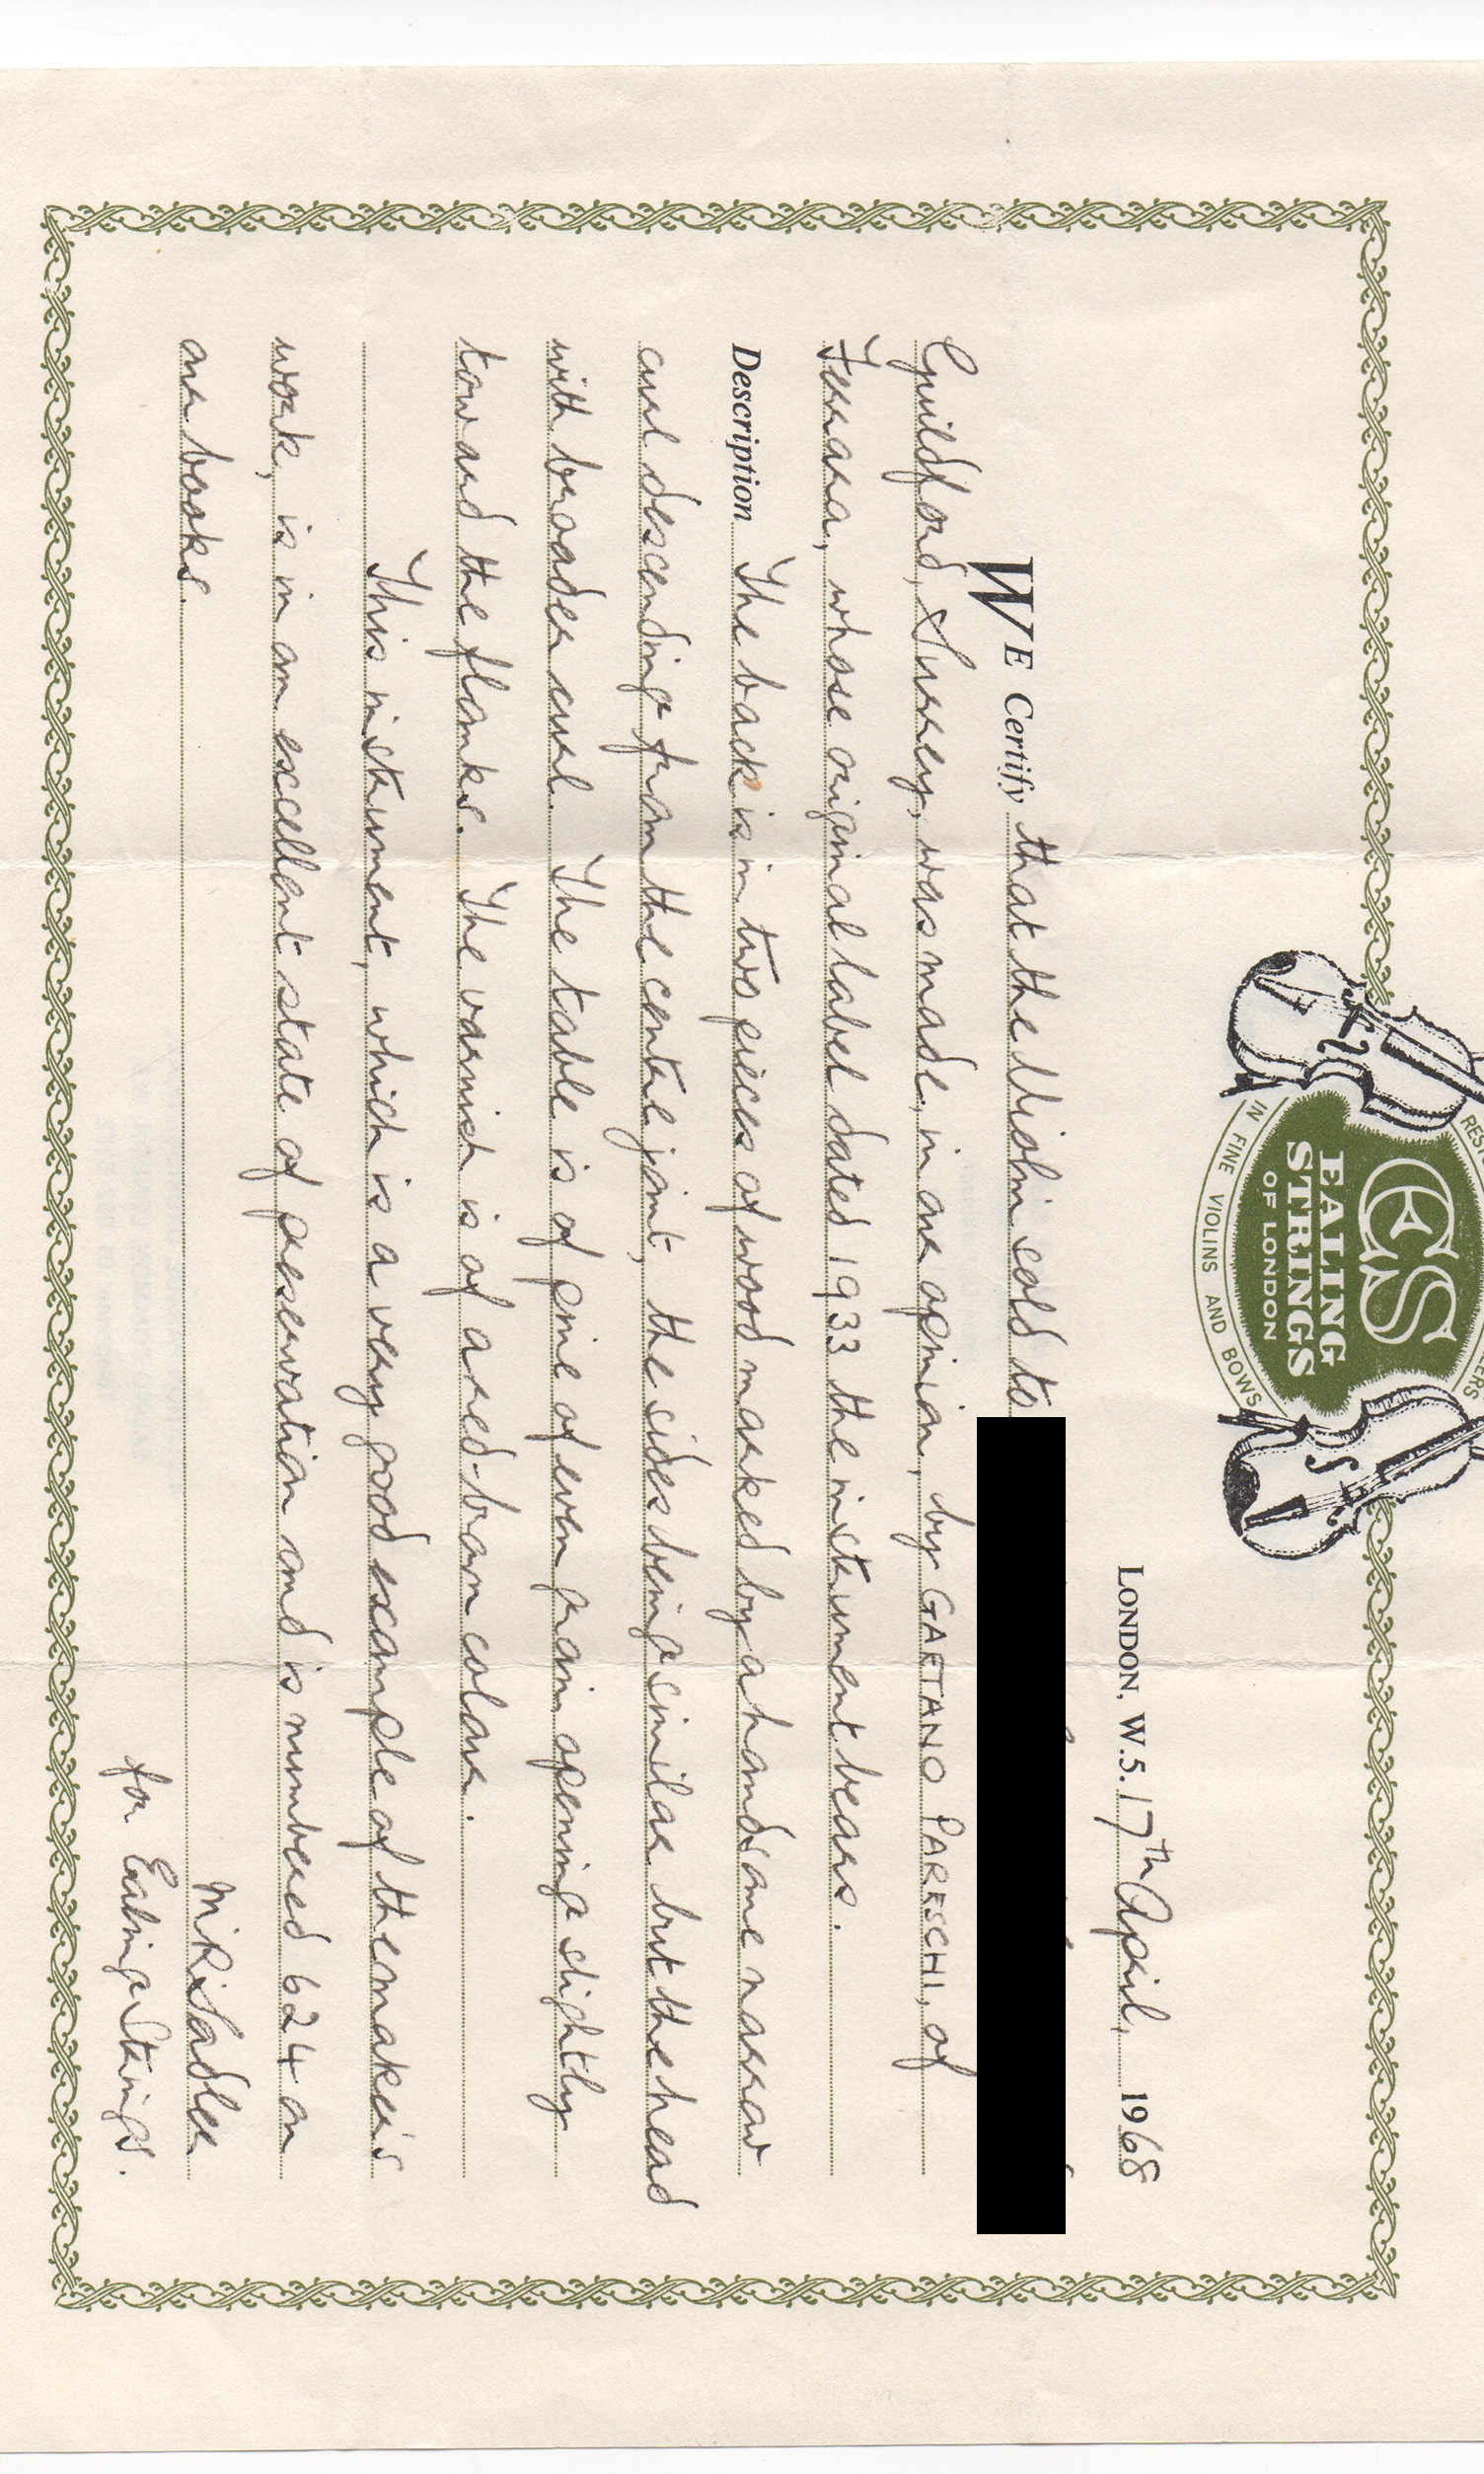 ES
EALING
STRINGS
OF LONDON
IN FINE VIOLINS AND BOWS
LONDON, W.5. 17th April, 1968
WE Certify that the Violin sold to
Guildford, Surrey, was made, in our opinion, by GAETANO PARESCHI, of
Ferrara, whose original label dated 1933 the instrument bears.
Description The back is in two pieces of wood marked by a handsome narrow
curl descending from the centre joint, the sides being similar but the head
with broader curl. The table is of pine of even grain opening slightly
toward the flanks. The varnish is of a red-brown colour.
This instrument, which is a very good example of the maker's
work, is in an excellent state of preservation and is numbered 624 on
our books.
M R Sadler
for Ealing Strings.